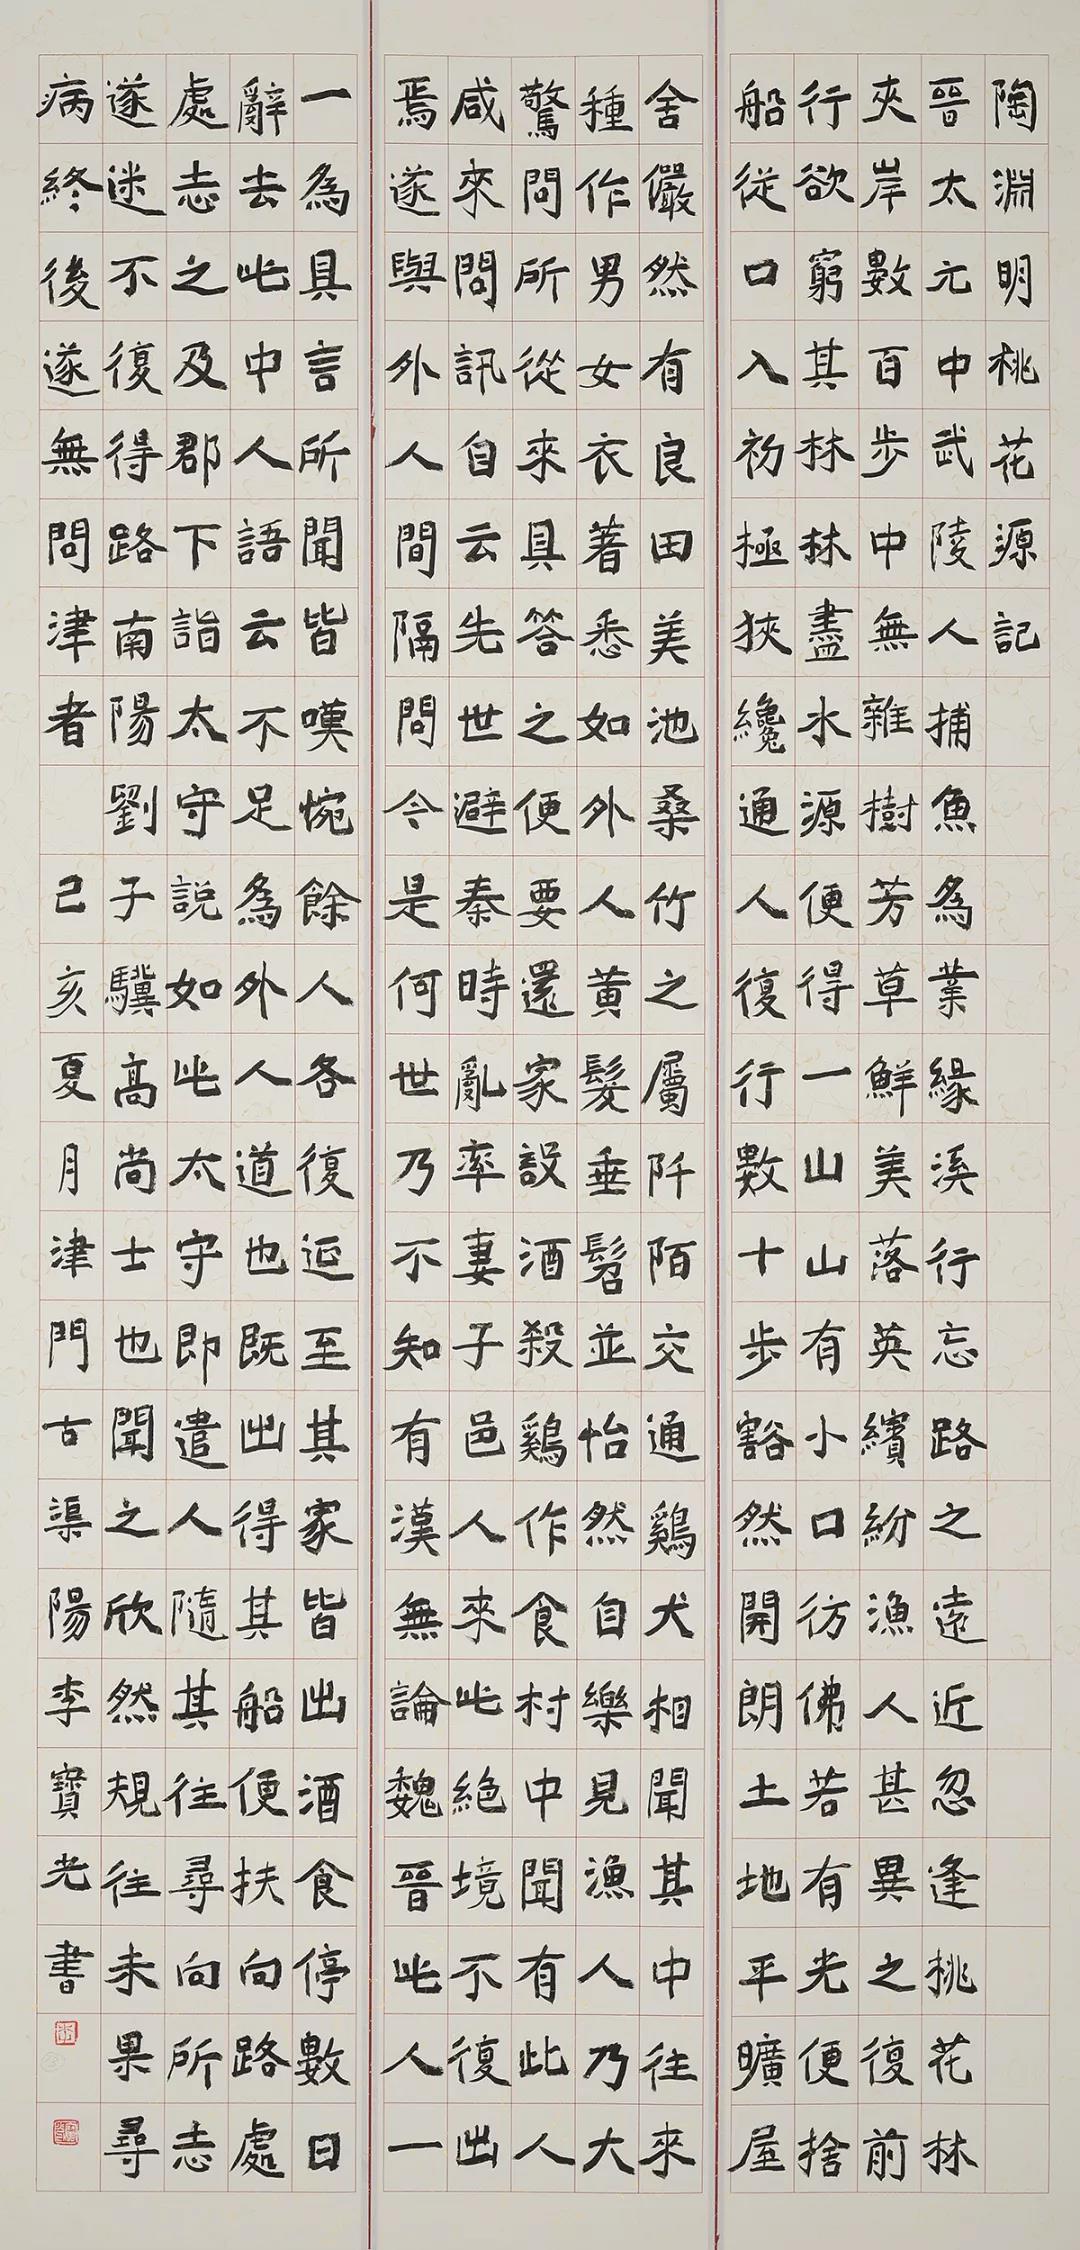 陶淵明桃花源記
晉太元中武陵人捕魚為業緣溪行忘路之遠近忽逢桃花林
夾岸數百步中無雜樹芳草鮮美落英繽紛漁人甚異之復前
行欲窮其林林盡水源便得一山山有小口彷佛若有光便捨
船從口入初極狹纔通人復行數十步豁然開朗土地平曠屋
舍儼然有良田美池桑竹之屬阡陌交通鷄犬相聞其中往來
種作男女衣著悉如外人黃髮垂髫並怡然自樂見漁人乃大
驚問所從來具答之便要還家設酒殺鷄作食村中聞有此人
咸來問訊自云先世避秦時亂率妻子邑人來此絕境不復出
焉遂與外人間隔問今是何世乃不知有漢無論魏晉此人一
一為具言所聞皆嘆惋餘人各復延至其家皆出酒食停數日
辭去此中人語云不足為外人道也既出得其船便扶向路處
處志之及郡下詣太守說如此太守即遣人隨其往尋向所志
遂迷不復得路南陽劉子驥高尚士也聞之欣然規往未果尋
病終後遂無問津者 己亥夏月津門古渠陽李寶光書